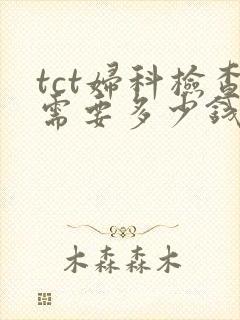 tct婦科檢查
需要多少錢
木森森木